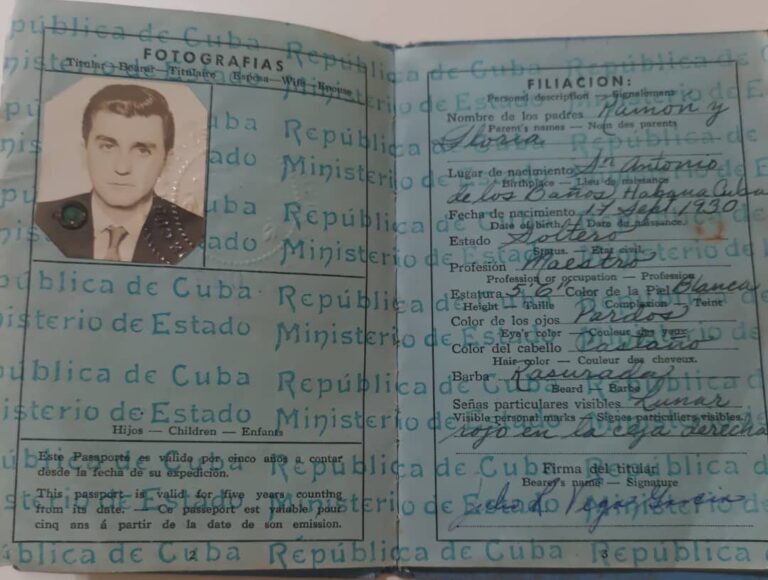 FOTOGRAFIAS
Titular — Bearer — Titulaire Esposa — Wife — Epouse
Hijos — Children — Enfants
Este Pasaporte es válido por cinco años a contar
desde la fecha de su expedición.
This passport is valid for five years counting
from its date. — Ce passeport est valable pour
cinq ans á partir de la date de son emission.
2
FILIACION:
Personal description — Signalement
Nombre de los padres Ramon y
Parent's names — Nom des parents
Gloria
Lugar de nacimiento Sn Antonio
Birthplace — Lieu de naissance
de los Baños, Habana Cuba
Fecha de nacimiento 17 Sept 1930
Date of birth — Date du naissance.
Estado Soltero
Status. — Etat civil.
Profesión Maestro
Profession or occupation — Profession
Estatura 5' 6" Color de la Piel Blanca
Height — Taille Complexion — Teint
Color de los ojos Pardos
Eye's color — Couleur des yeux
Color del cabello Castaño
Hair color — Couleur des cheveux.
Barba Rasurada
Beard — Barbe
Señas particulares visibles Lunar
Visible personal marks — Signes particuliers visibles.
rojo en la ceja derecha
Firma del titular
Bearer's name — Signature
Julio L Vegas Garcia
3
República de Cuba
Ministerio de Estado